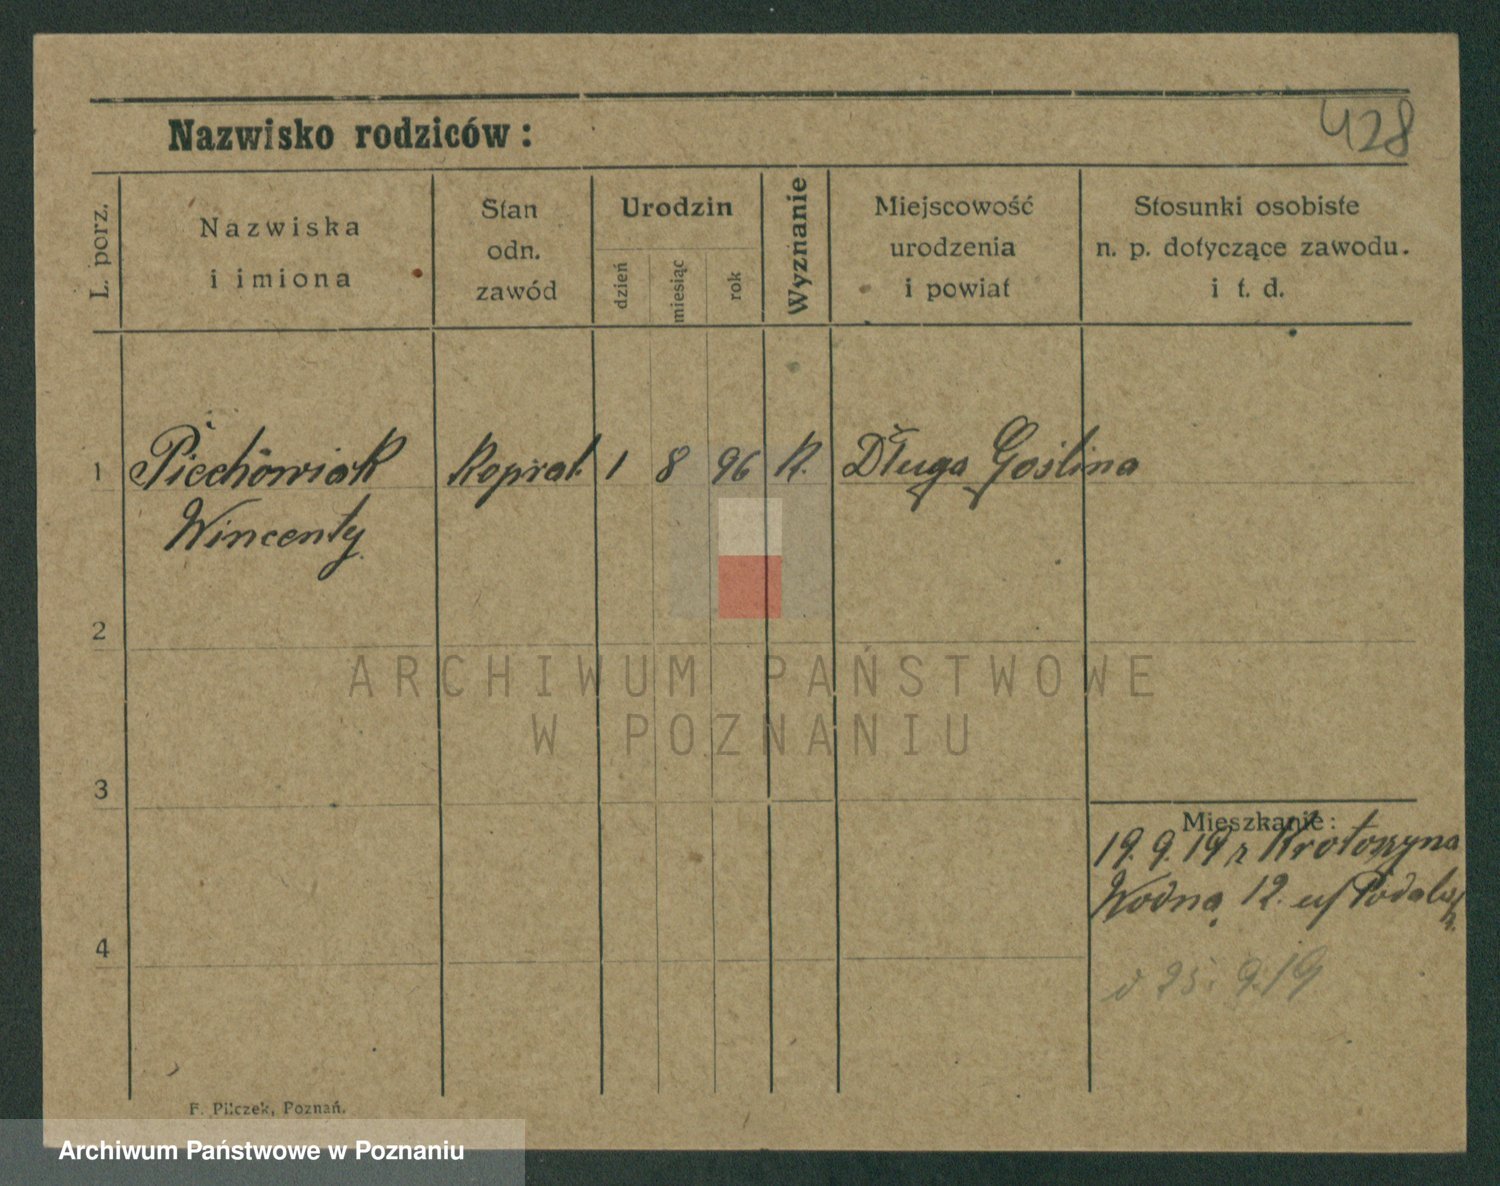 428
Nazwisko rodziców:
L. porz.
Nazwiska
i imiona
Stan
odn.
zawód
Urodzin
dzień
miesiąc
rok
Wyznanie
Miejscowość
urodzenia
i powiat
Stosunki osobiste
n. p. dotyczące zawodu.
i t. d.
1 Piechowiak Kopral. 1 8 96 K. Długa Goślina
Wincenty
2
ARCHIWUM PAŃSTWOWE
W POZNANIU
3
Mieszkanie:
19. 9. 19 z Krotoszyna
Wodna 12.
4
25. 9. 19
F. Pilczek, Poznań.
Archiwum Państwowe w Poznaniu